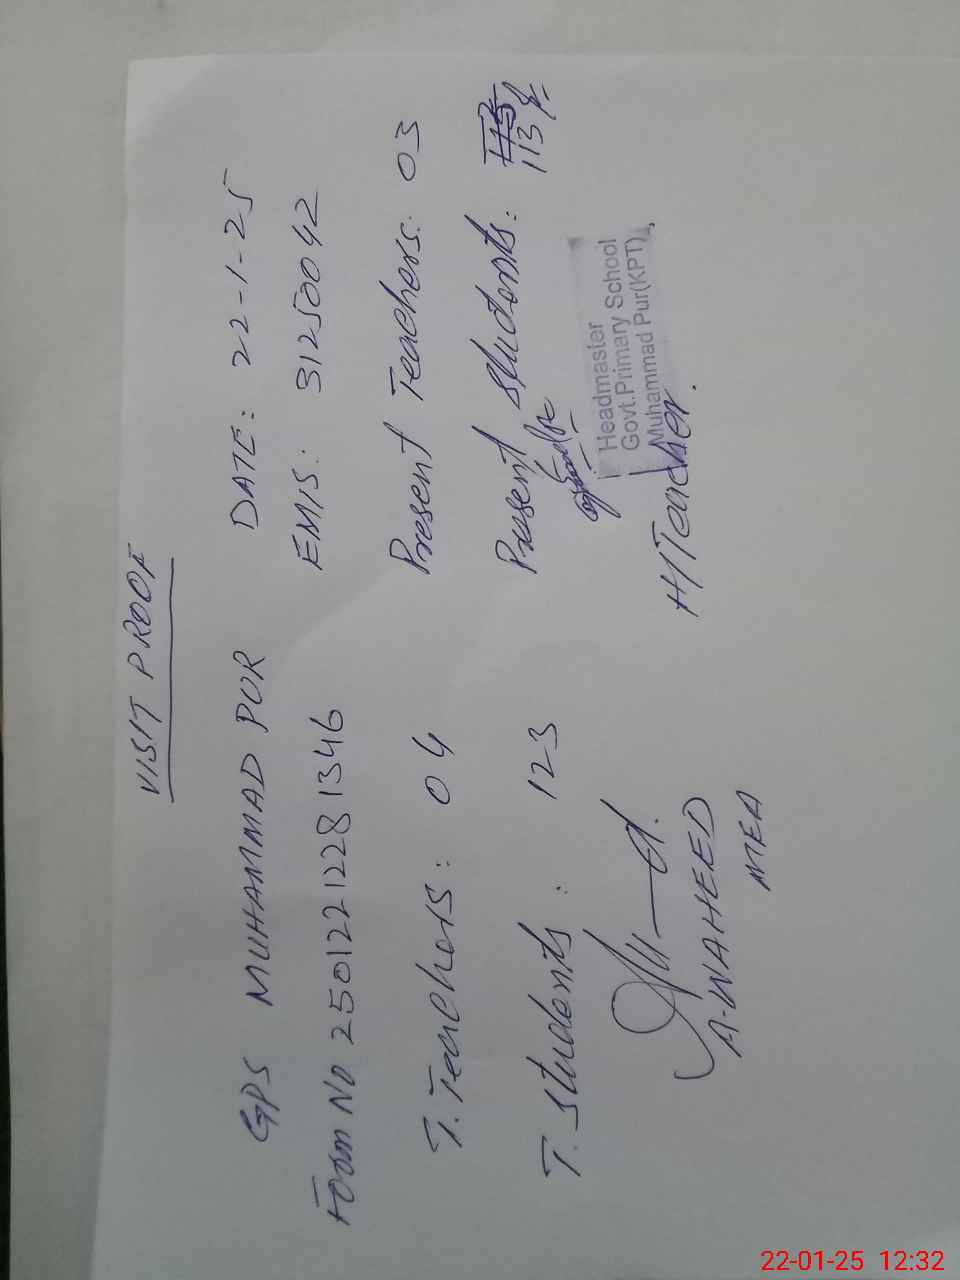 VISIT PROOF
GPS MUHAMMAD PUR DATE: 22-1-25
Form No 2501221228 1346 EMIS: 31250042
T. Teachers: 04 Present Teachers: 03
T. Students: 123 Present Students: 113
Headmaster
Govt.Primary School
Muhammad Pur(KPT)
H/Teacher.
A-WAHEED
MEA
22-01-25 12:32